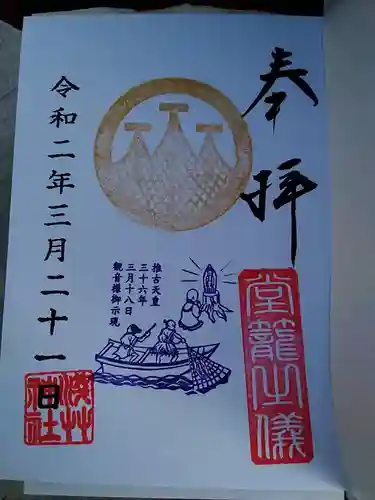 奉拝
堂龍出儀
推古天皇
三十六年
三月十八日
観音様御示現
令和二年三月二十一日
浅草
神社